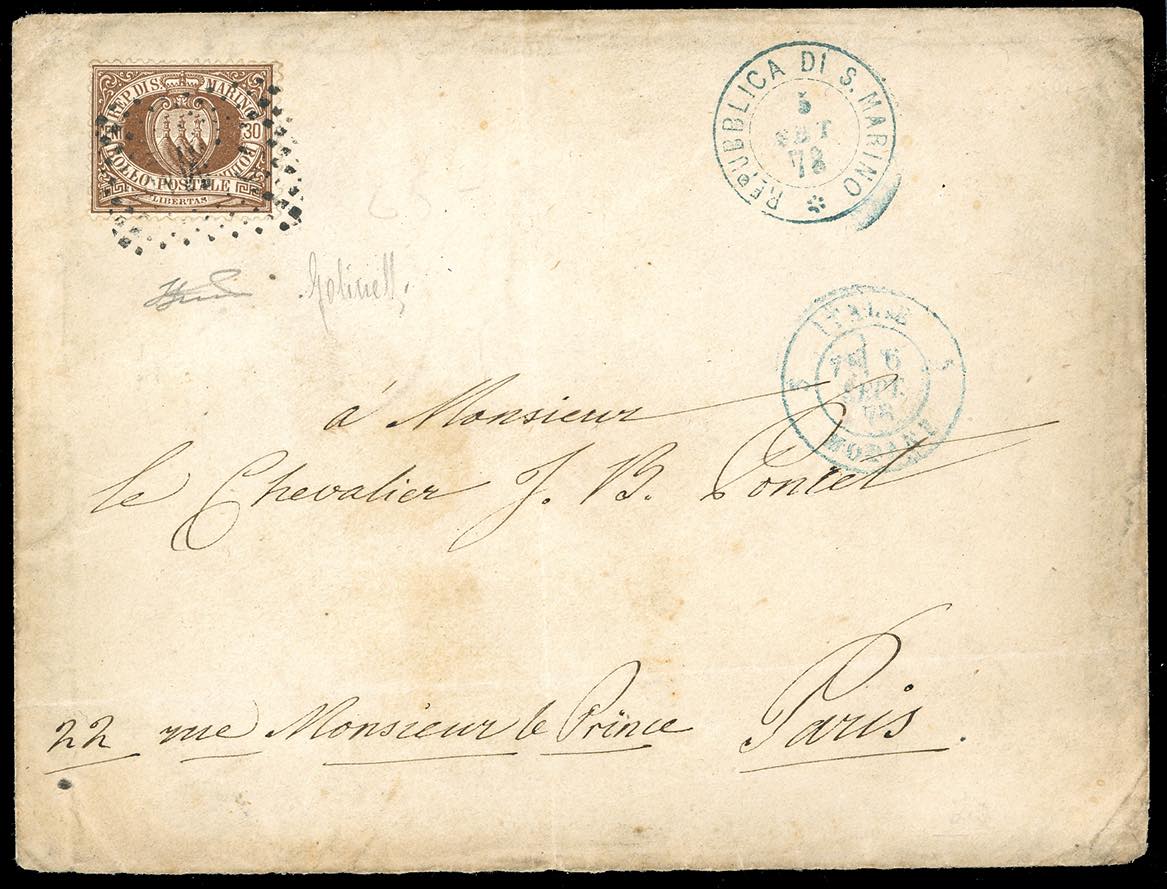 REP. DI S. MARINO
30
BOLLO POSTALE
LIBERTAS
REPUBBLICA DI S. MARINO
5
SET
78
ITALIE
6
SEPT.
78
5 5
MODANE
à Monsieur
le Chevalier J. B. Pontet
22 rue Monsieur le Prince Paris.